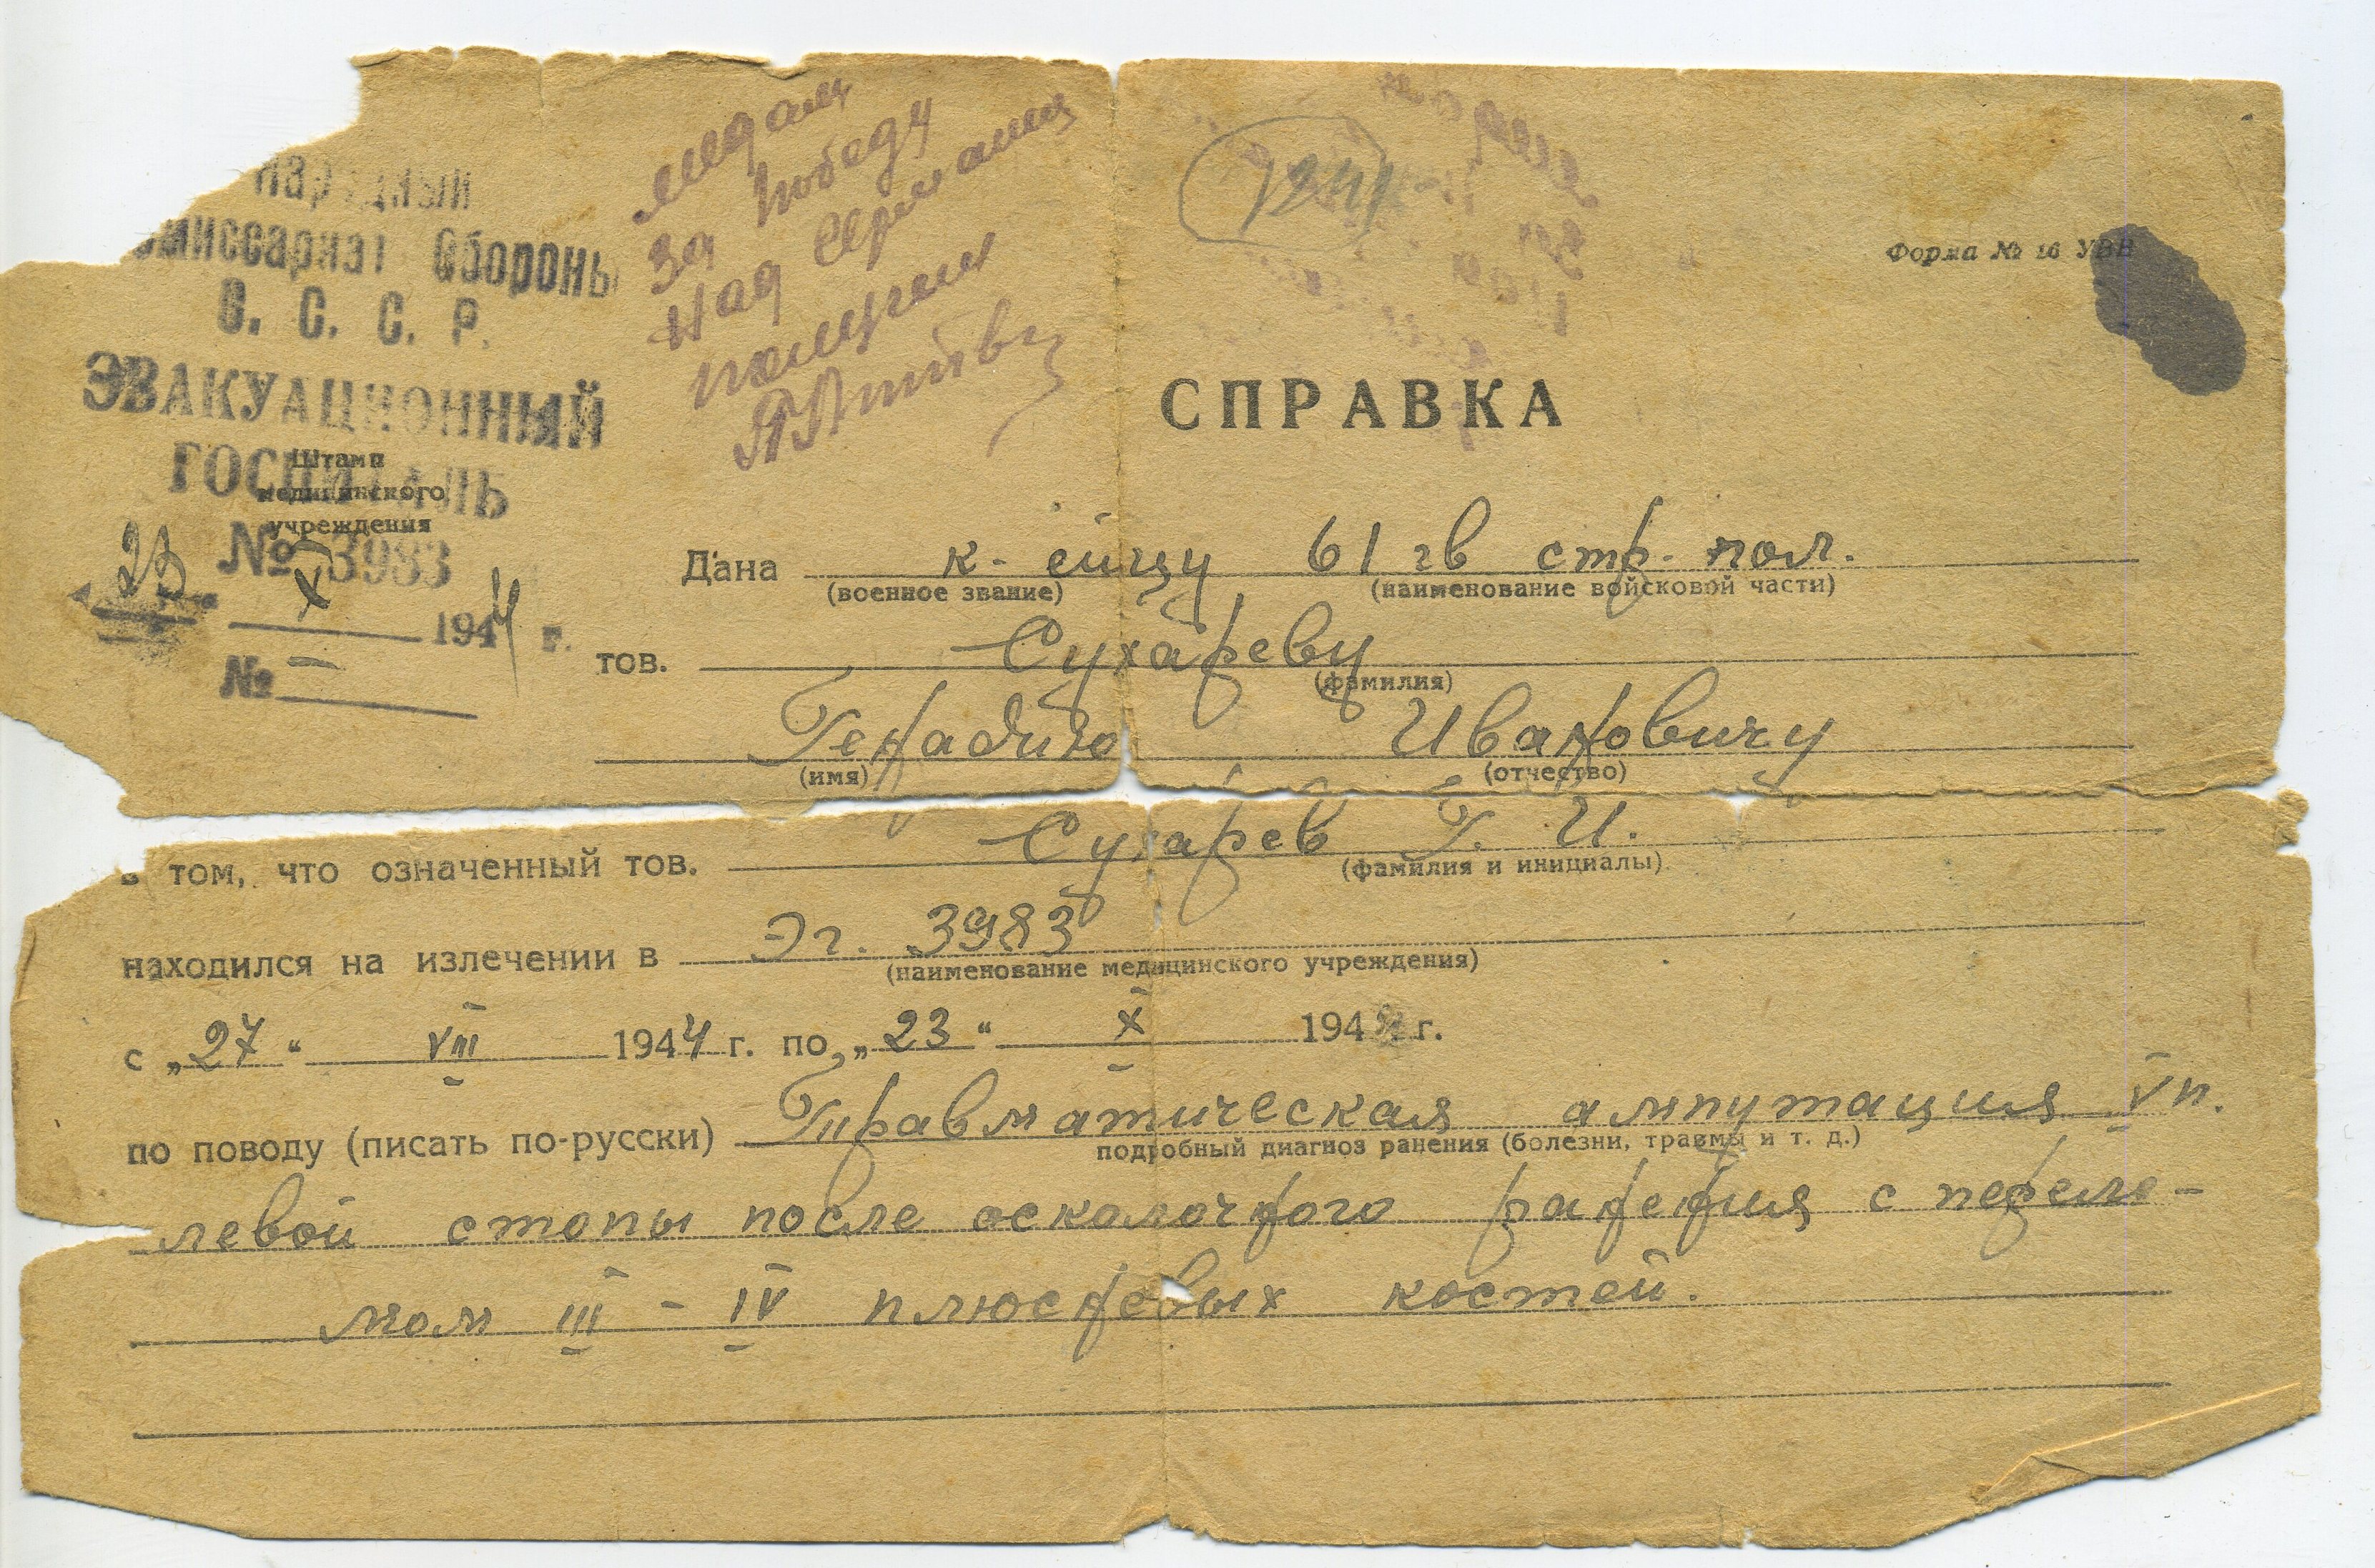 Народный
омиссариат Обороны
С. С. С. Р.
ЭВАКУАЦИОННЫЙ
ГОСПИТАЛЬ
Штамп
медицинского
учреждения
№ 3983
23 X 1944 г.
№ —
медаль
За победу
над Германия
получен
Форма № 16 УВВ
СПРАВКА
Дана к-ейцу 61 гв стр. пол.
(военное звание) (наименование войсковой части)
тов. Сухареву
(фамилия)
Генадию Ивановичу
(имя) (отчество)
в том, что означенный тов. Сухарев Г. И.
(фамилия и инициалы)
находился на излечении в Эг. 3983
(наименование медицинского учреждения)
с „27“ VIII 1944 г. по „23“ X 1944 г.
по поводу (писать по-русски) Травматическая ампутация V п.
подробный диагноз ранения (болезни, травмы и т. д.)
левой стопы после осколочного ранения с перело-
мом III - IV плюсневых костей.